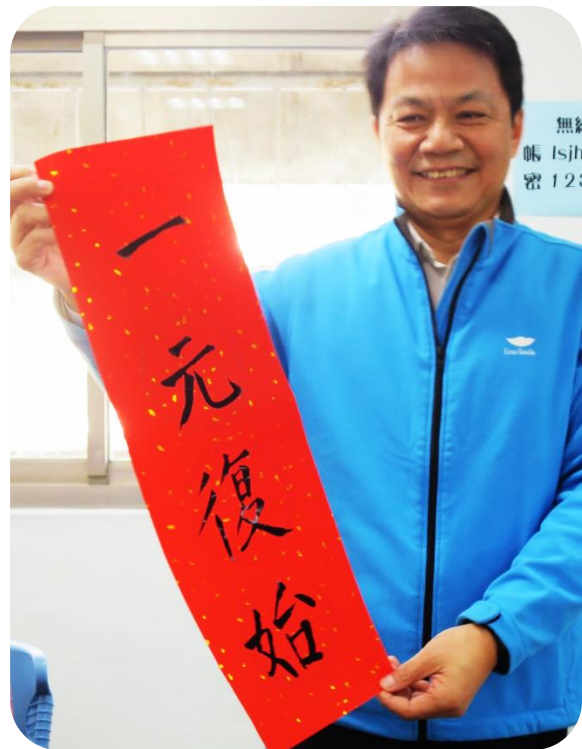 一元復始
無
帳 lsjh
密 123